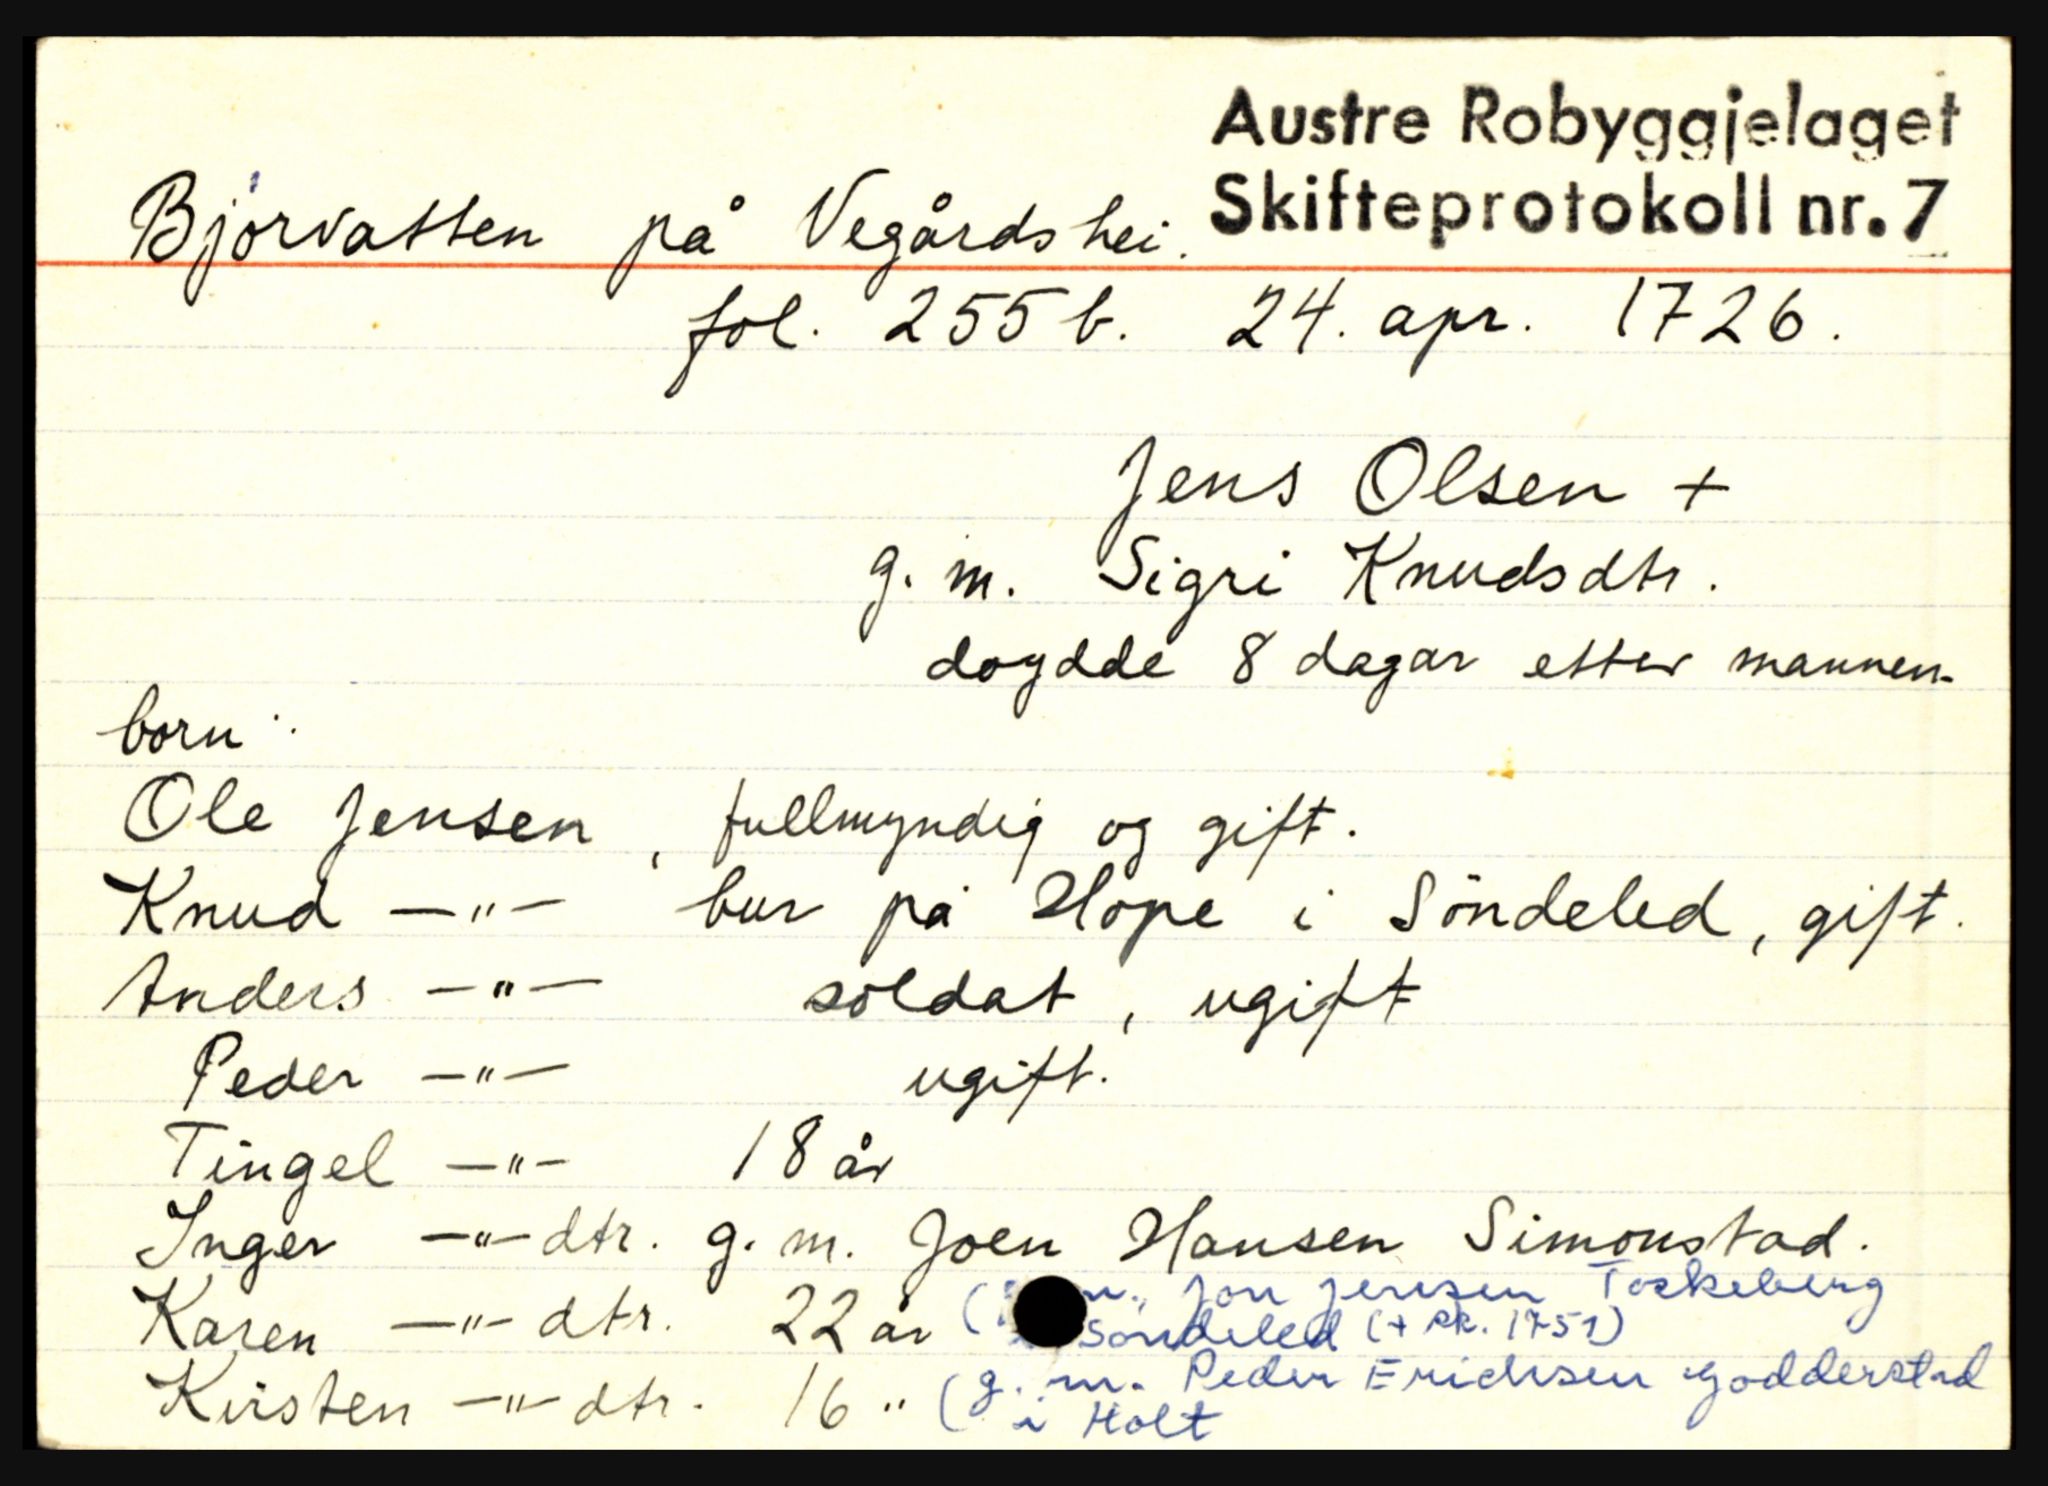 Austre Robyggjelaget
Skifteprotokoll nr. 7
Bjørvatten på Vegårdshei.
fol. 255 b. 24. apr. 1726.
Jens Olsen +
g. m. Sigri Knudsdtr.
døydde 8 dagar etter mannen.
born:
Ole Jensen, fullmyndig og gift.
Knud —"— bur på Hope i Söndeled, gift.
Anders —"— soldat, ugift
Peder —"— ugift.
Tingel —"— 18 år
Inger —"— dtr. g. m. Joen Hansen Simonstad.
Karen —"— dtr. 22 år ( m. Jon Jensen Toskeberg
Søndeled (+ sk. 1751)
Kirsten —"— dtr. 16 " (g. m. Peder Erichsen Godderstad
i Holt